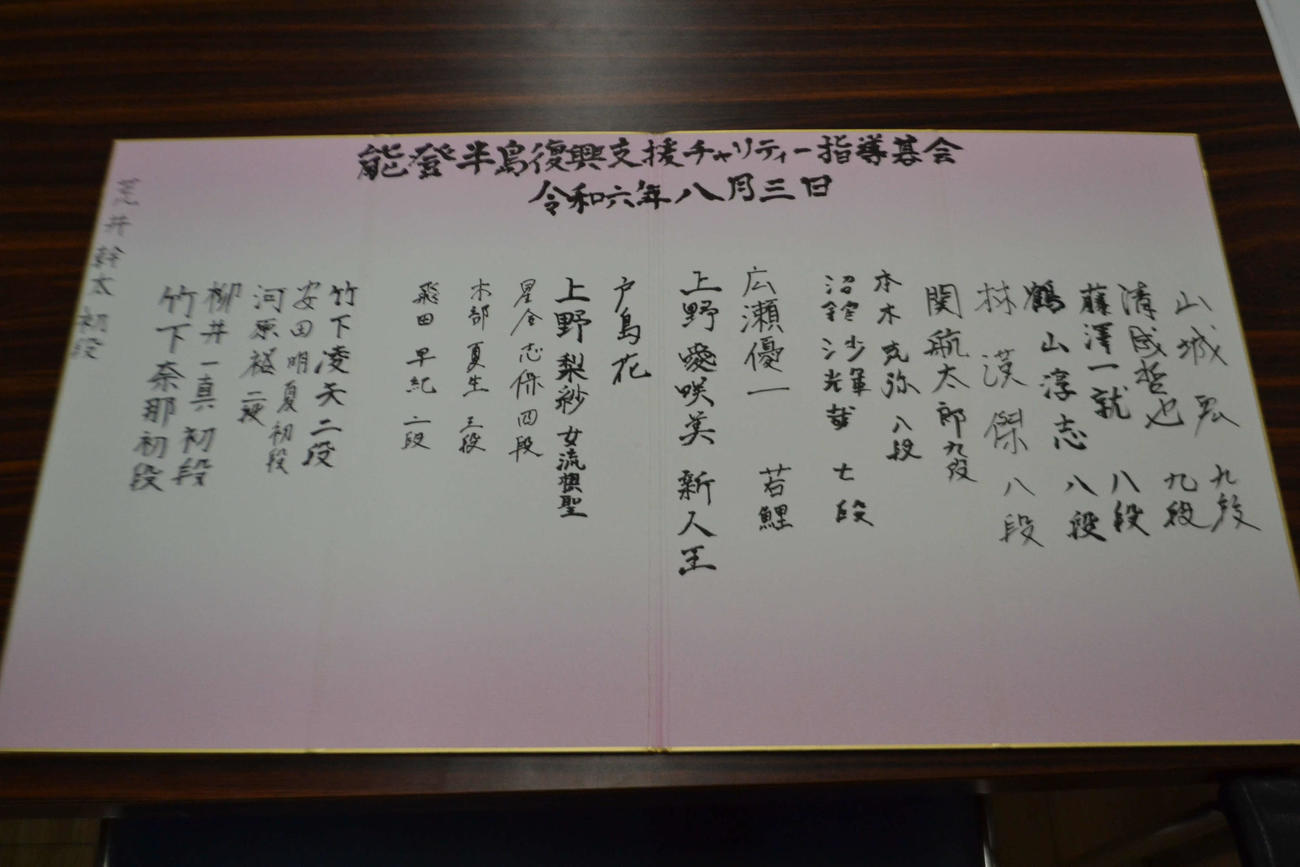 能登半島復興支援チャリティー指導碁会
令和六年八月三日
山城宏 九段
溝成哲也 九段
藤澤一就 八段
鶴山淳志 八段
林漢傑 八段
関航太郎 九段
本木克弥 八段
沼舘沙輝哉 七段
広瀬優一 若鯉
上野愛咲美 新人王
戸島花
上野梨紗 女流棋聖
星合志保 四段
木部夏生 三段
飛田早紀 二段
竹下凌矢二段
安田明夏初段
河原裕二段
柳井一真初段
竹下奈那初段
荒井幹太初段